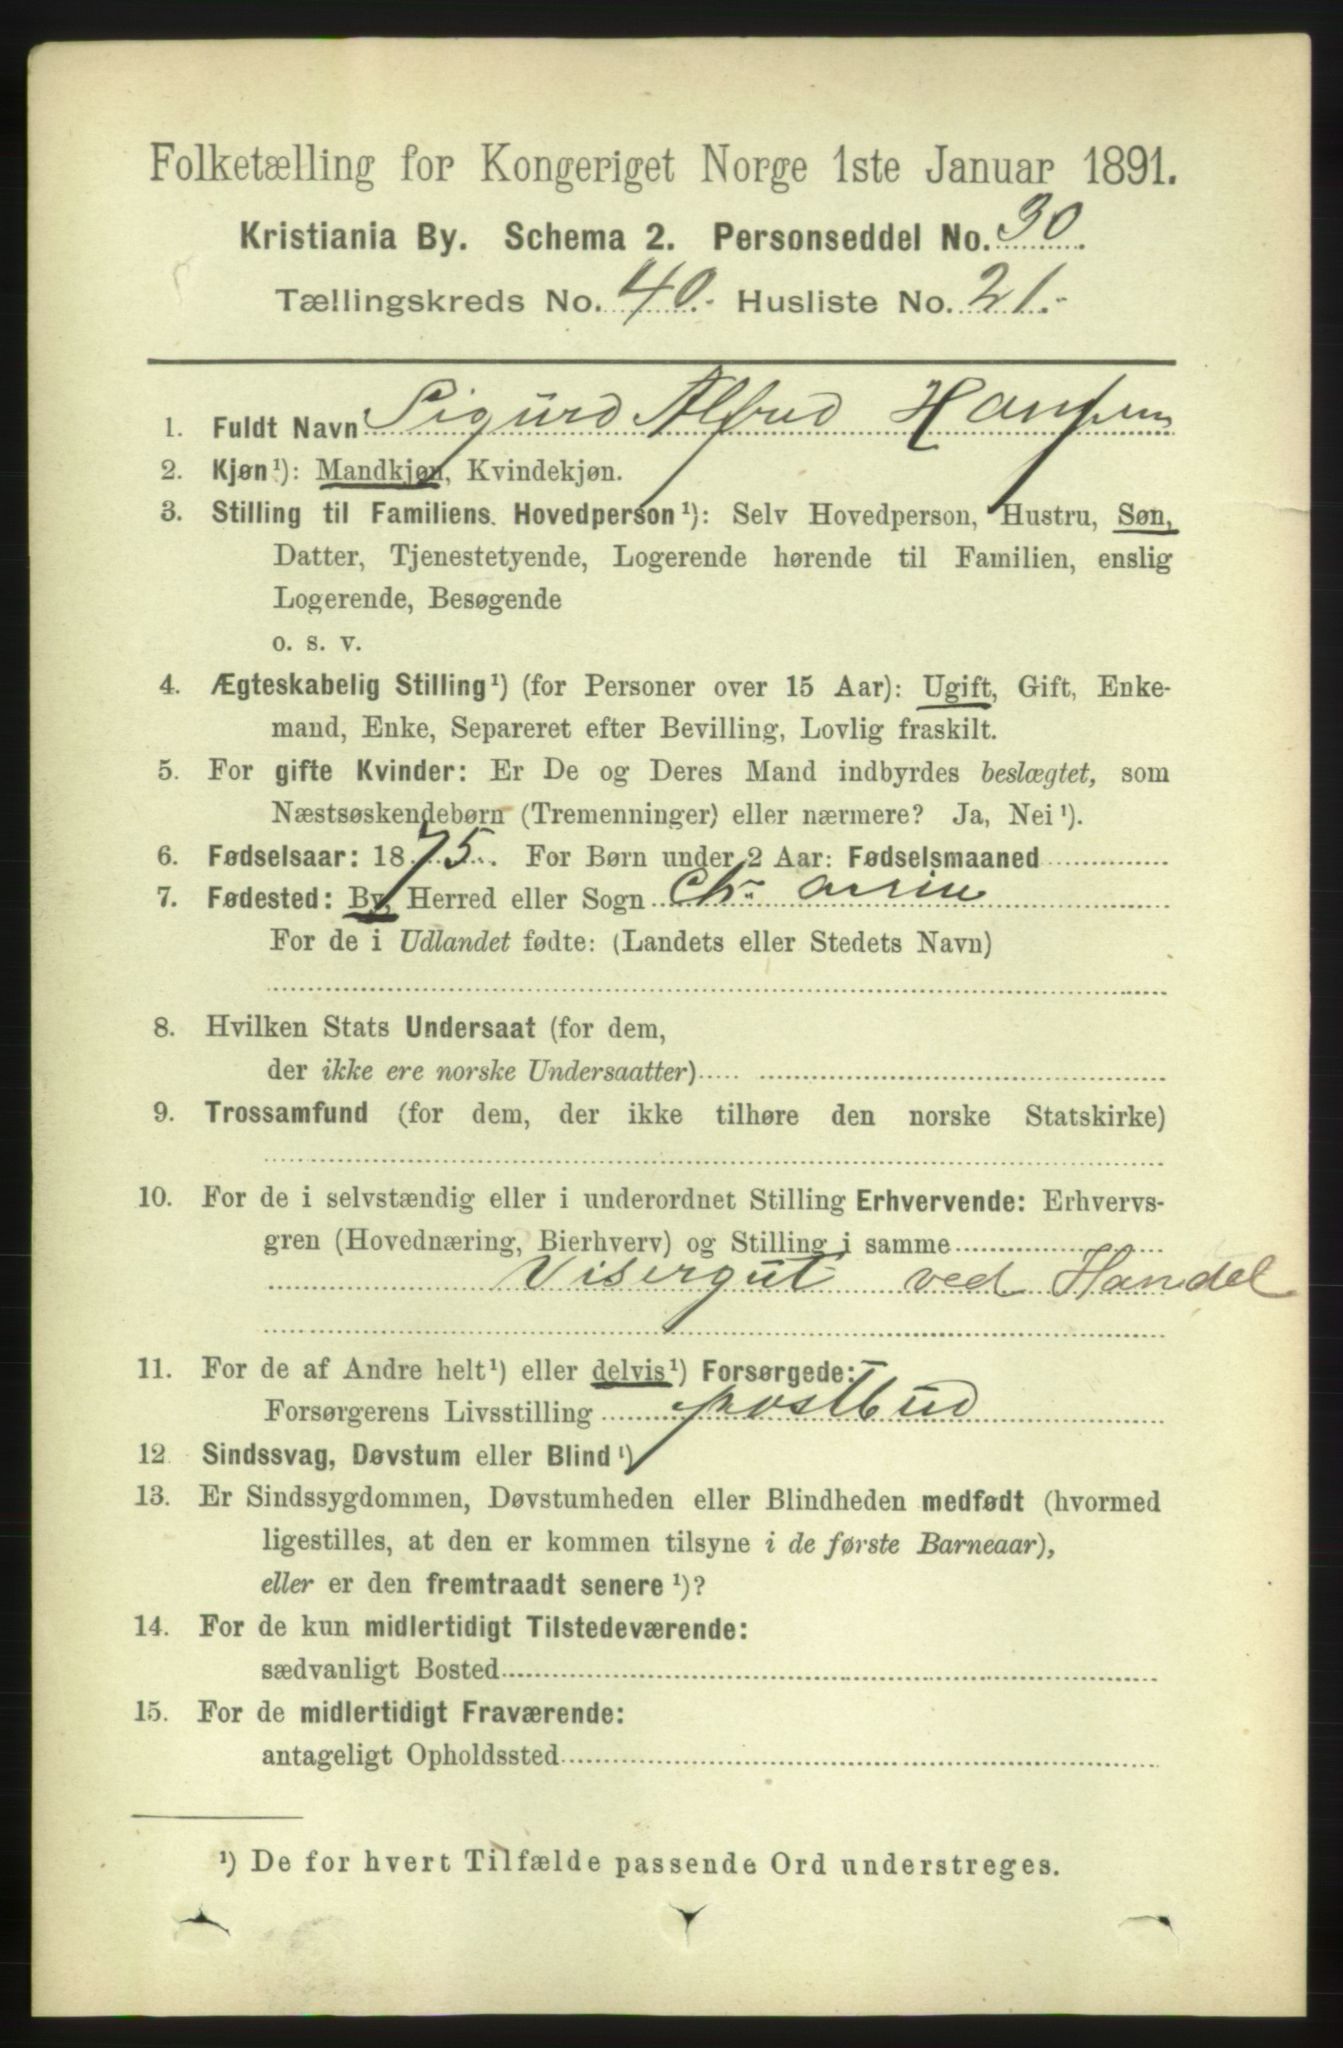 Folketælling for Kongeriget Norge 1ste Januar 1891.
Kristiania By. Schema 2. Personseddel No. 30.
Tællingskreds No. 40.- Husliste No. 21.-
1. Fuldt Navn Sigurd Alfred Hansen
2. Kjøn¹): Mandkjøn, Kvindekjøn.
3. Stilling til Familiens Hovedperson¹): Selv Hovedperson, Hustru, Søn,
Datter, Tjenestetyende, Logerende hørende til Familien, enslig
Logerende, Besøgende
o. s. v.
4. Ægteskabelig Stilling¹) (for Personer over 15 Aar): Ugift, Gift, Enke-
mand, Enke, Separeret efter Bevilling, Lovlig fraskilt.
5. For gifte Kvinder: Er De og Deres Mand indbyrdes beslægtet, som
Næstsøskendebørn (Tremenninger) eller nærmere? Ja, Nei¹).
6. Fødselsaar: 1875. For Børn under 2 Aar: Fødselsmaaned
7. Fødested: By, Herred eller Sogn Chr
For de i Udlandet fødte: (Landets eller Stedets Navn)
8. Hvilken Stats Undersaat (for dem,
der ikke ere norske Undersaatter)
9. Trossamfund (for dem, der ikke tilhøre den norske Statskirke)
10. For de i selvstændig eller i underordnet Stilling Erhvervende: Erhvervs-
gren (Hovednæring, Bierhverv) og Stilling i samme
Visergut ved Handel
11. For de af Andre helt¹) eller delvis¹) Forsørgede:
Forsørgerens Livsstilling postbud
12. Sindssvag, Døvstum eller Blind¹)
13. Er Sindssygdommen, Døvstumheden eller Blindheden medfødt (hvormed
ligestilles, at den er kommen tilsyne i de første Barneaar),
eller er den fremtraadt senere¹)?
14. For de kun midlertidigt Tilstedeværende:
sædvanligt Bosted
15. For de midlertidigt Fraværende:
antageligt Opholdssted
¹) De for hvert Tilfælde passende Ord understreges.